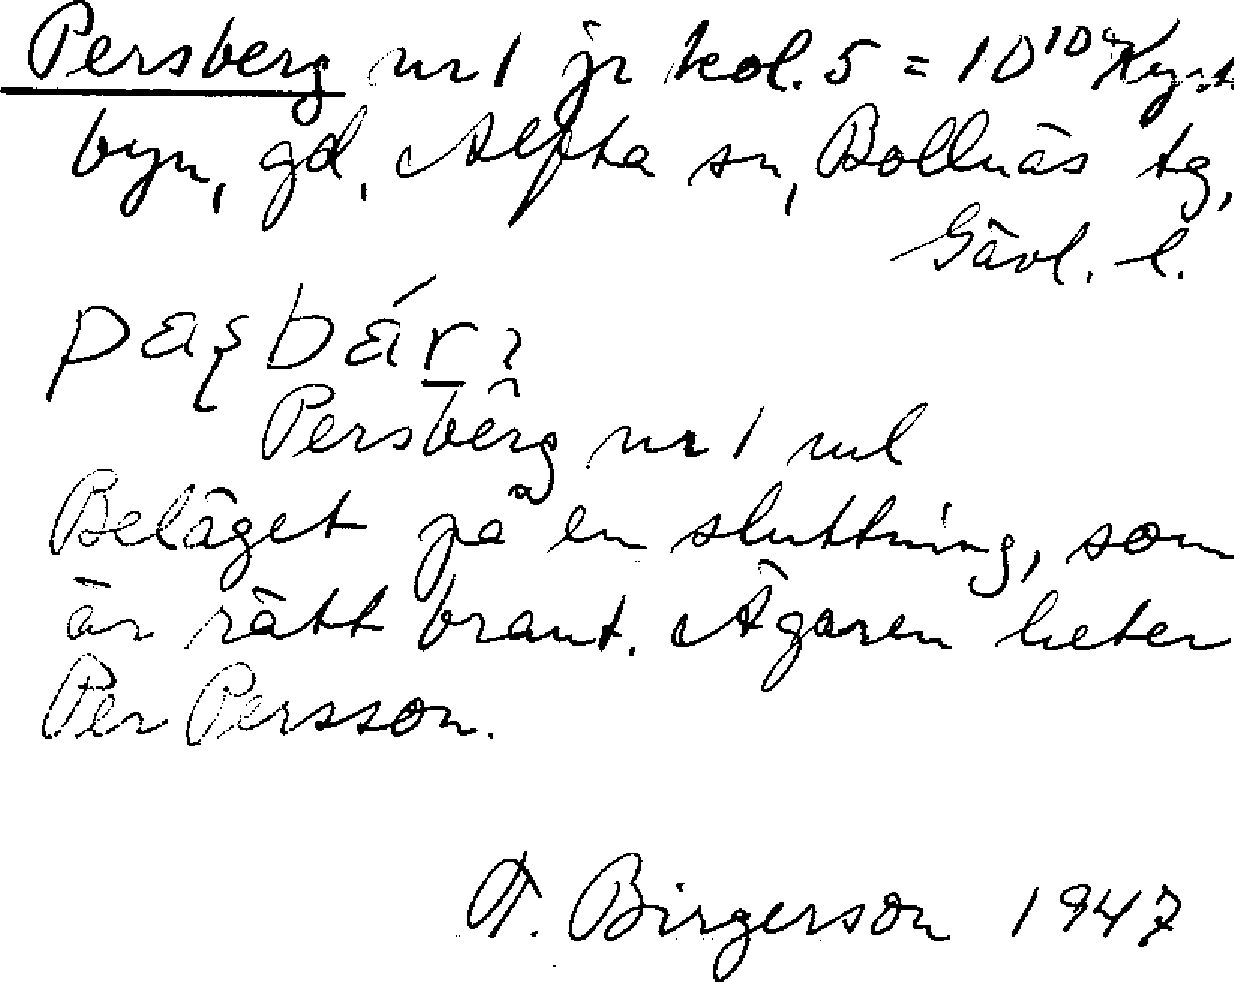 Persberg nr 1 jr kol. 5 = 10¹⁰ Kyrk
byn, gd, Alfta sn, Bollnäs tg,
Gävl. l.
Persberg nr 1 ml
Beläget på en sluttning, som
är rätt brant. Ägaren heter
Per Persson.
A. Birgerson 1947